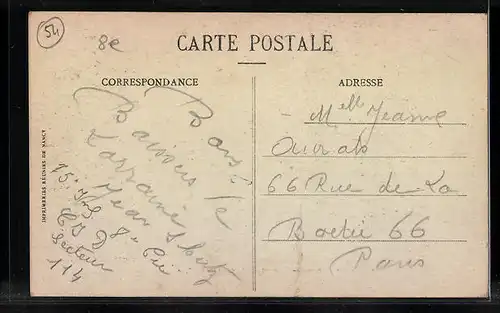 54
8e
CARTE POSTALE
CORRESPONDANCE
ADRESSE
Bons
Baisers de
Lorraine
Jean
15
8e Cie
Secteur
114
Melle Jeanne
66 Rue de La
Boetie 66
Paris
IMPRIMERIES RÉUNIES DE NANCY